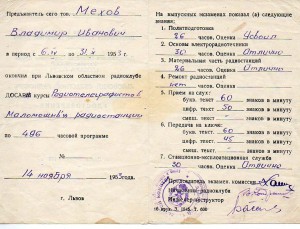 Предъявитель сего тов. Мехов
Владимир Иванович
в период с 6. по 31. 1953 г.
окончил при Львовском областном радиоклубе
ДОСААФ курсы Радиотелеграфистов
Маломощных радиостанций
по 496 часовой программе
14 ноября 1953 года.
г. Львов
На выпускных экзаменах показал (а) следующие
знания:
1. Политподготовка
26 часов. Оценка Усвоил
2. Основы электрорадиотехники
30 часов. Оценка Отлично
3. Материальная часть радиостанций
26 часов. Оценка Отлично
4. Ремонт радиостанций
нет часов. Оценка
5. Прием на слух:
букв. текст 60 знаков в минуту
смысл. текст " знаков в минуту
цифров. текст 50 знаков в минуту
6. Передача на ключе:
букв. текст 60 знаков в минуту
цифров. текст 45 знаков в минуту
7. Станционно-эксплоатационная служба
50 часов. Оценка Отлично
Председатель экзамен. комиссии
Начальник радиоклуба